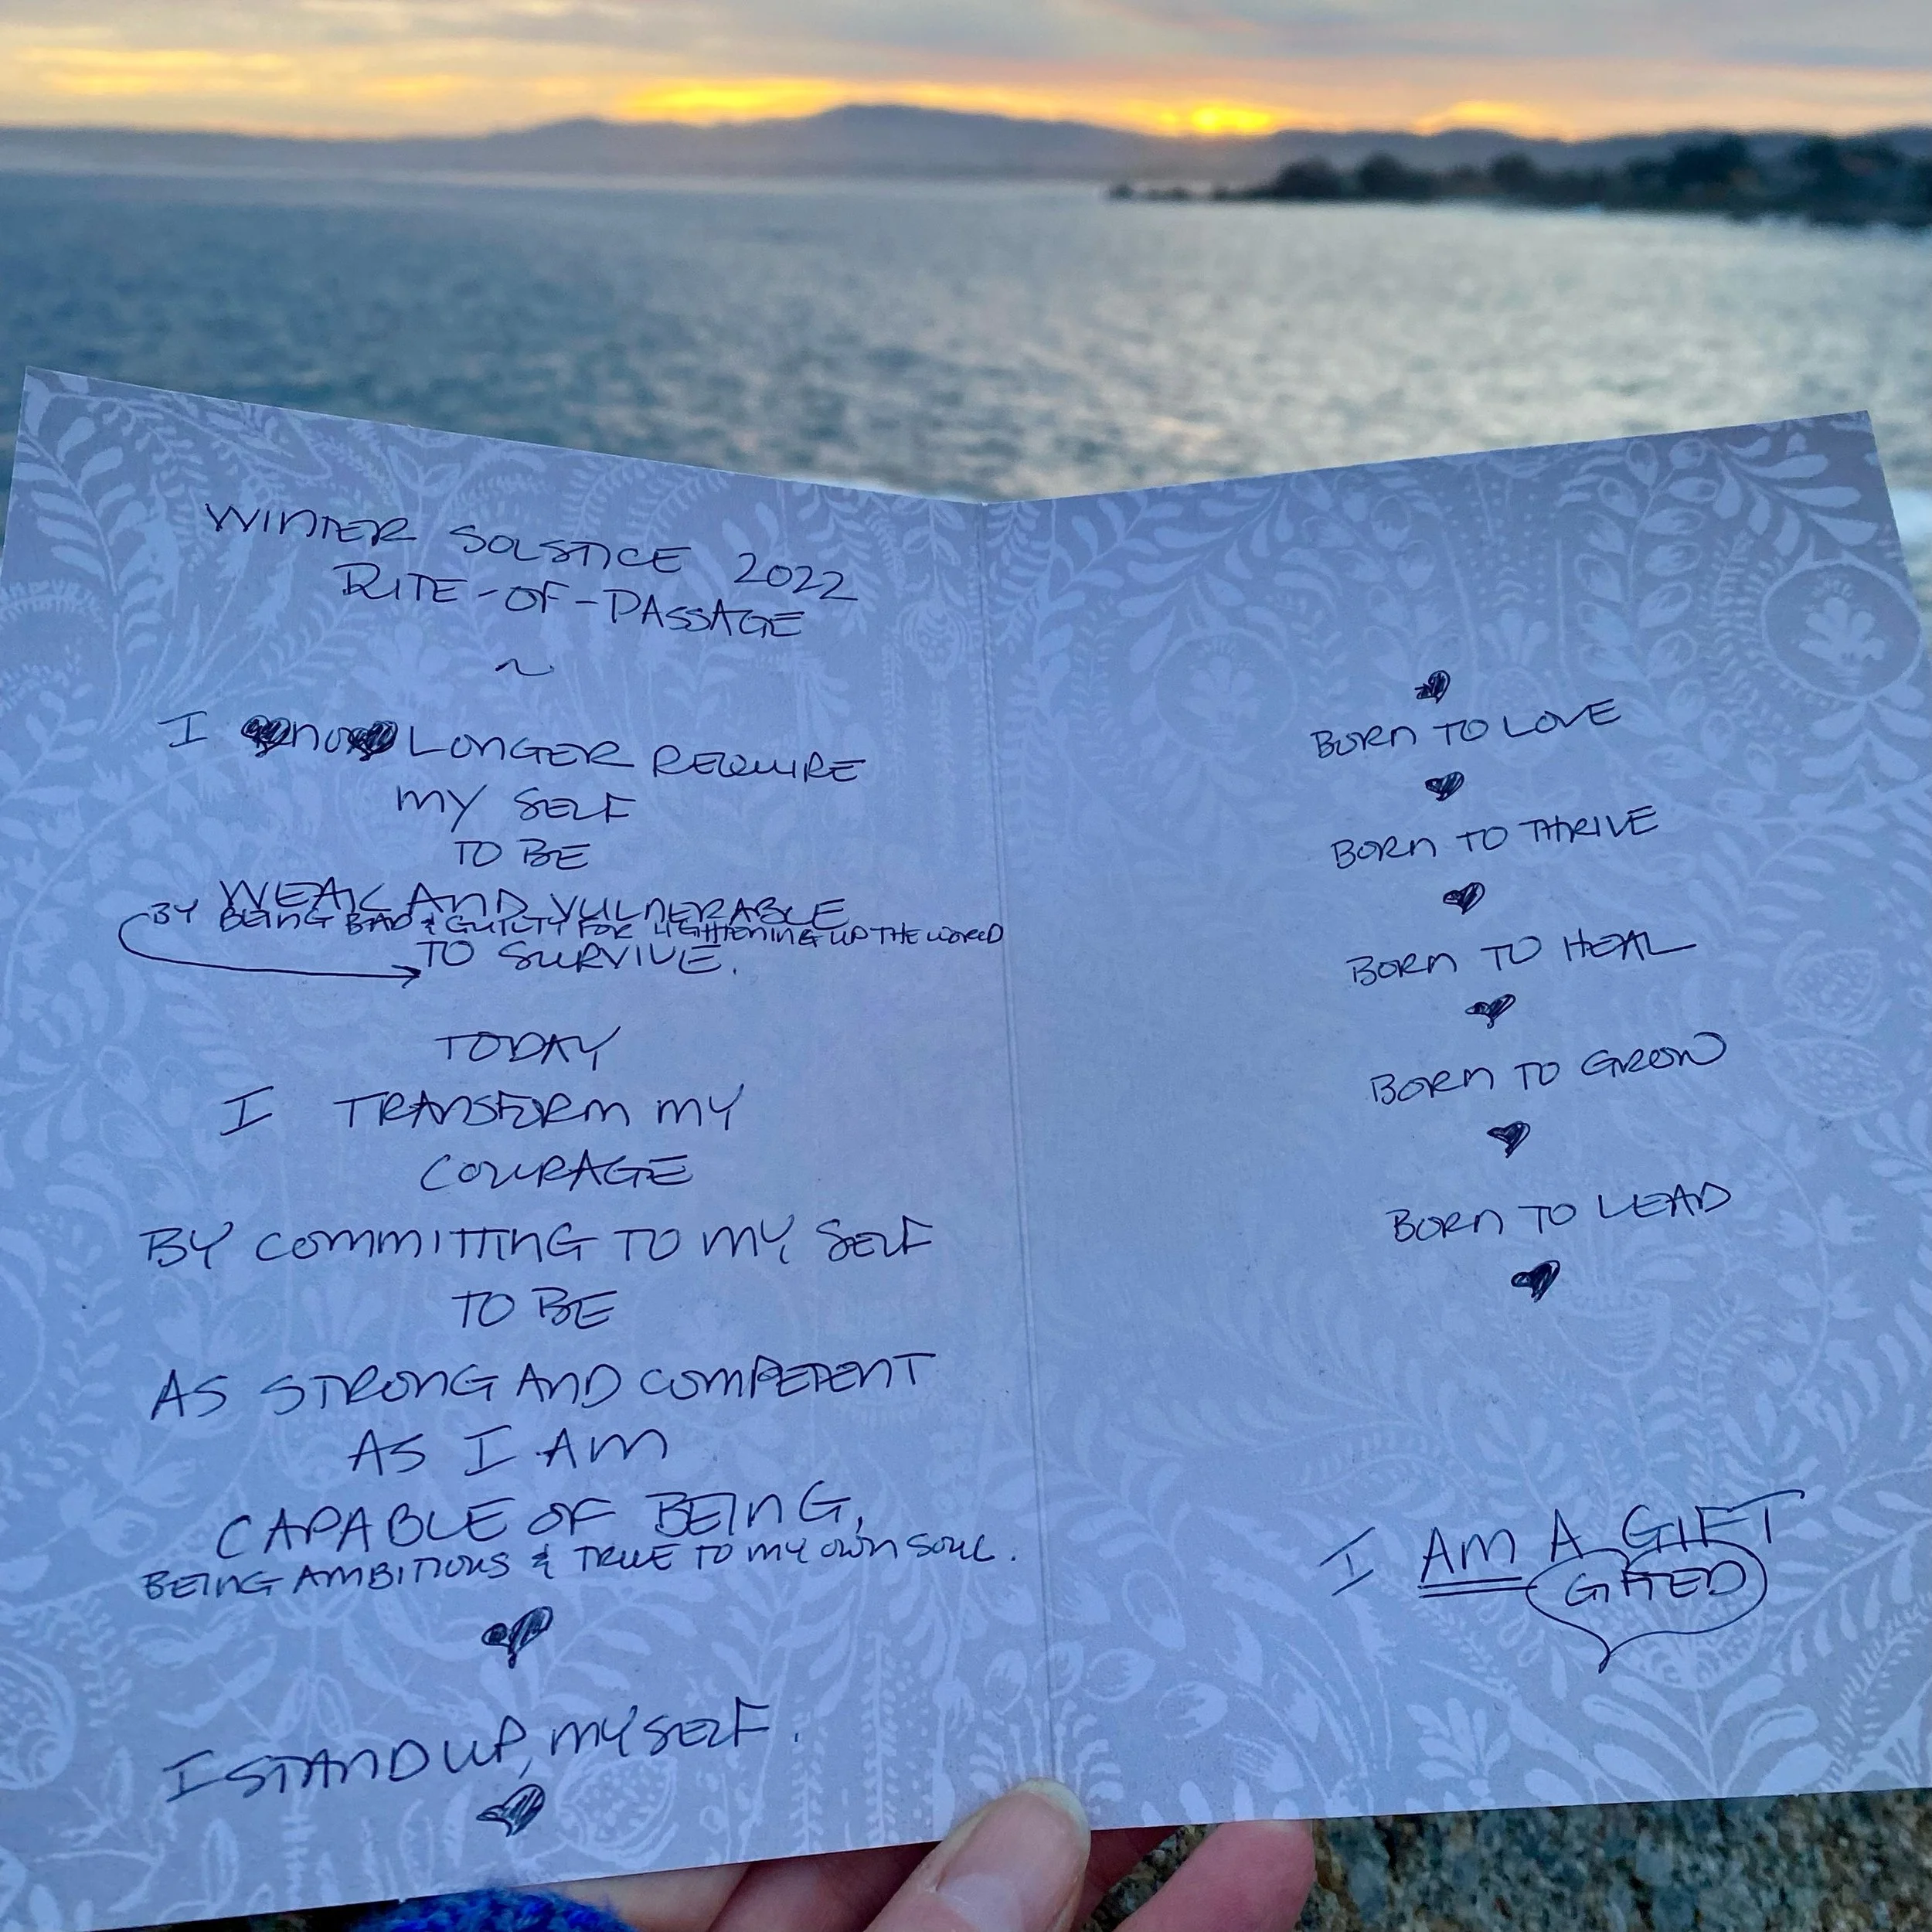 WINTER SOLSTICE 2022
RITE-OF-PASSAGE
~
I no LONGER REQUIRE
MY SELF
TO BE
WEAK AND VULNERABLE
BY BEING BAD & GUILTY FOR LIGHTENING UP THE WORLD
TO SURVIVE.
TODAY
I TRANSFORM MY
COURAGE
BY COMMITTING TO MY SELF
TO BE
AS STRONG AND COMPETENT
AS I AM
CAPABLE OF BEING,
BEING AMBITIOUS & TRUE TO MY OWN SOUL.
I STAND UP, MY SELF.
BORN TO LOVE
BORN TO THRIVE
BORN TO HEAL
BORN TO GROW
BORN TO LEAD
I AM A GIFT
GIFTED